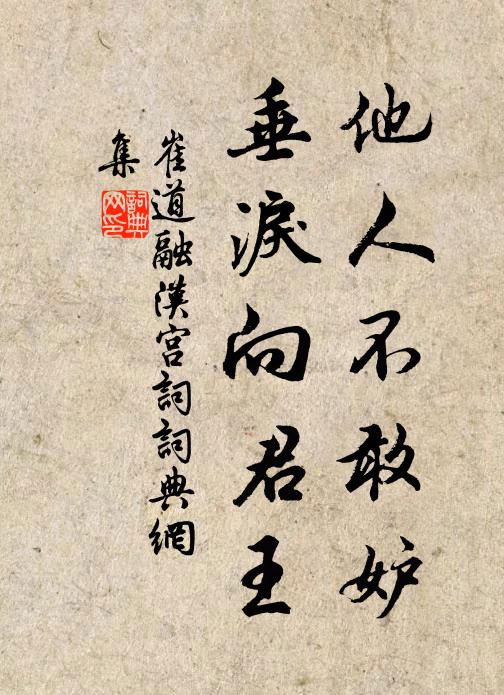 他人不敢妒
垂淚向君王
崔道融漢宮詞詞典網
集
詞典網印